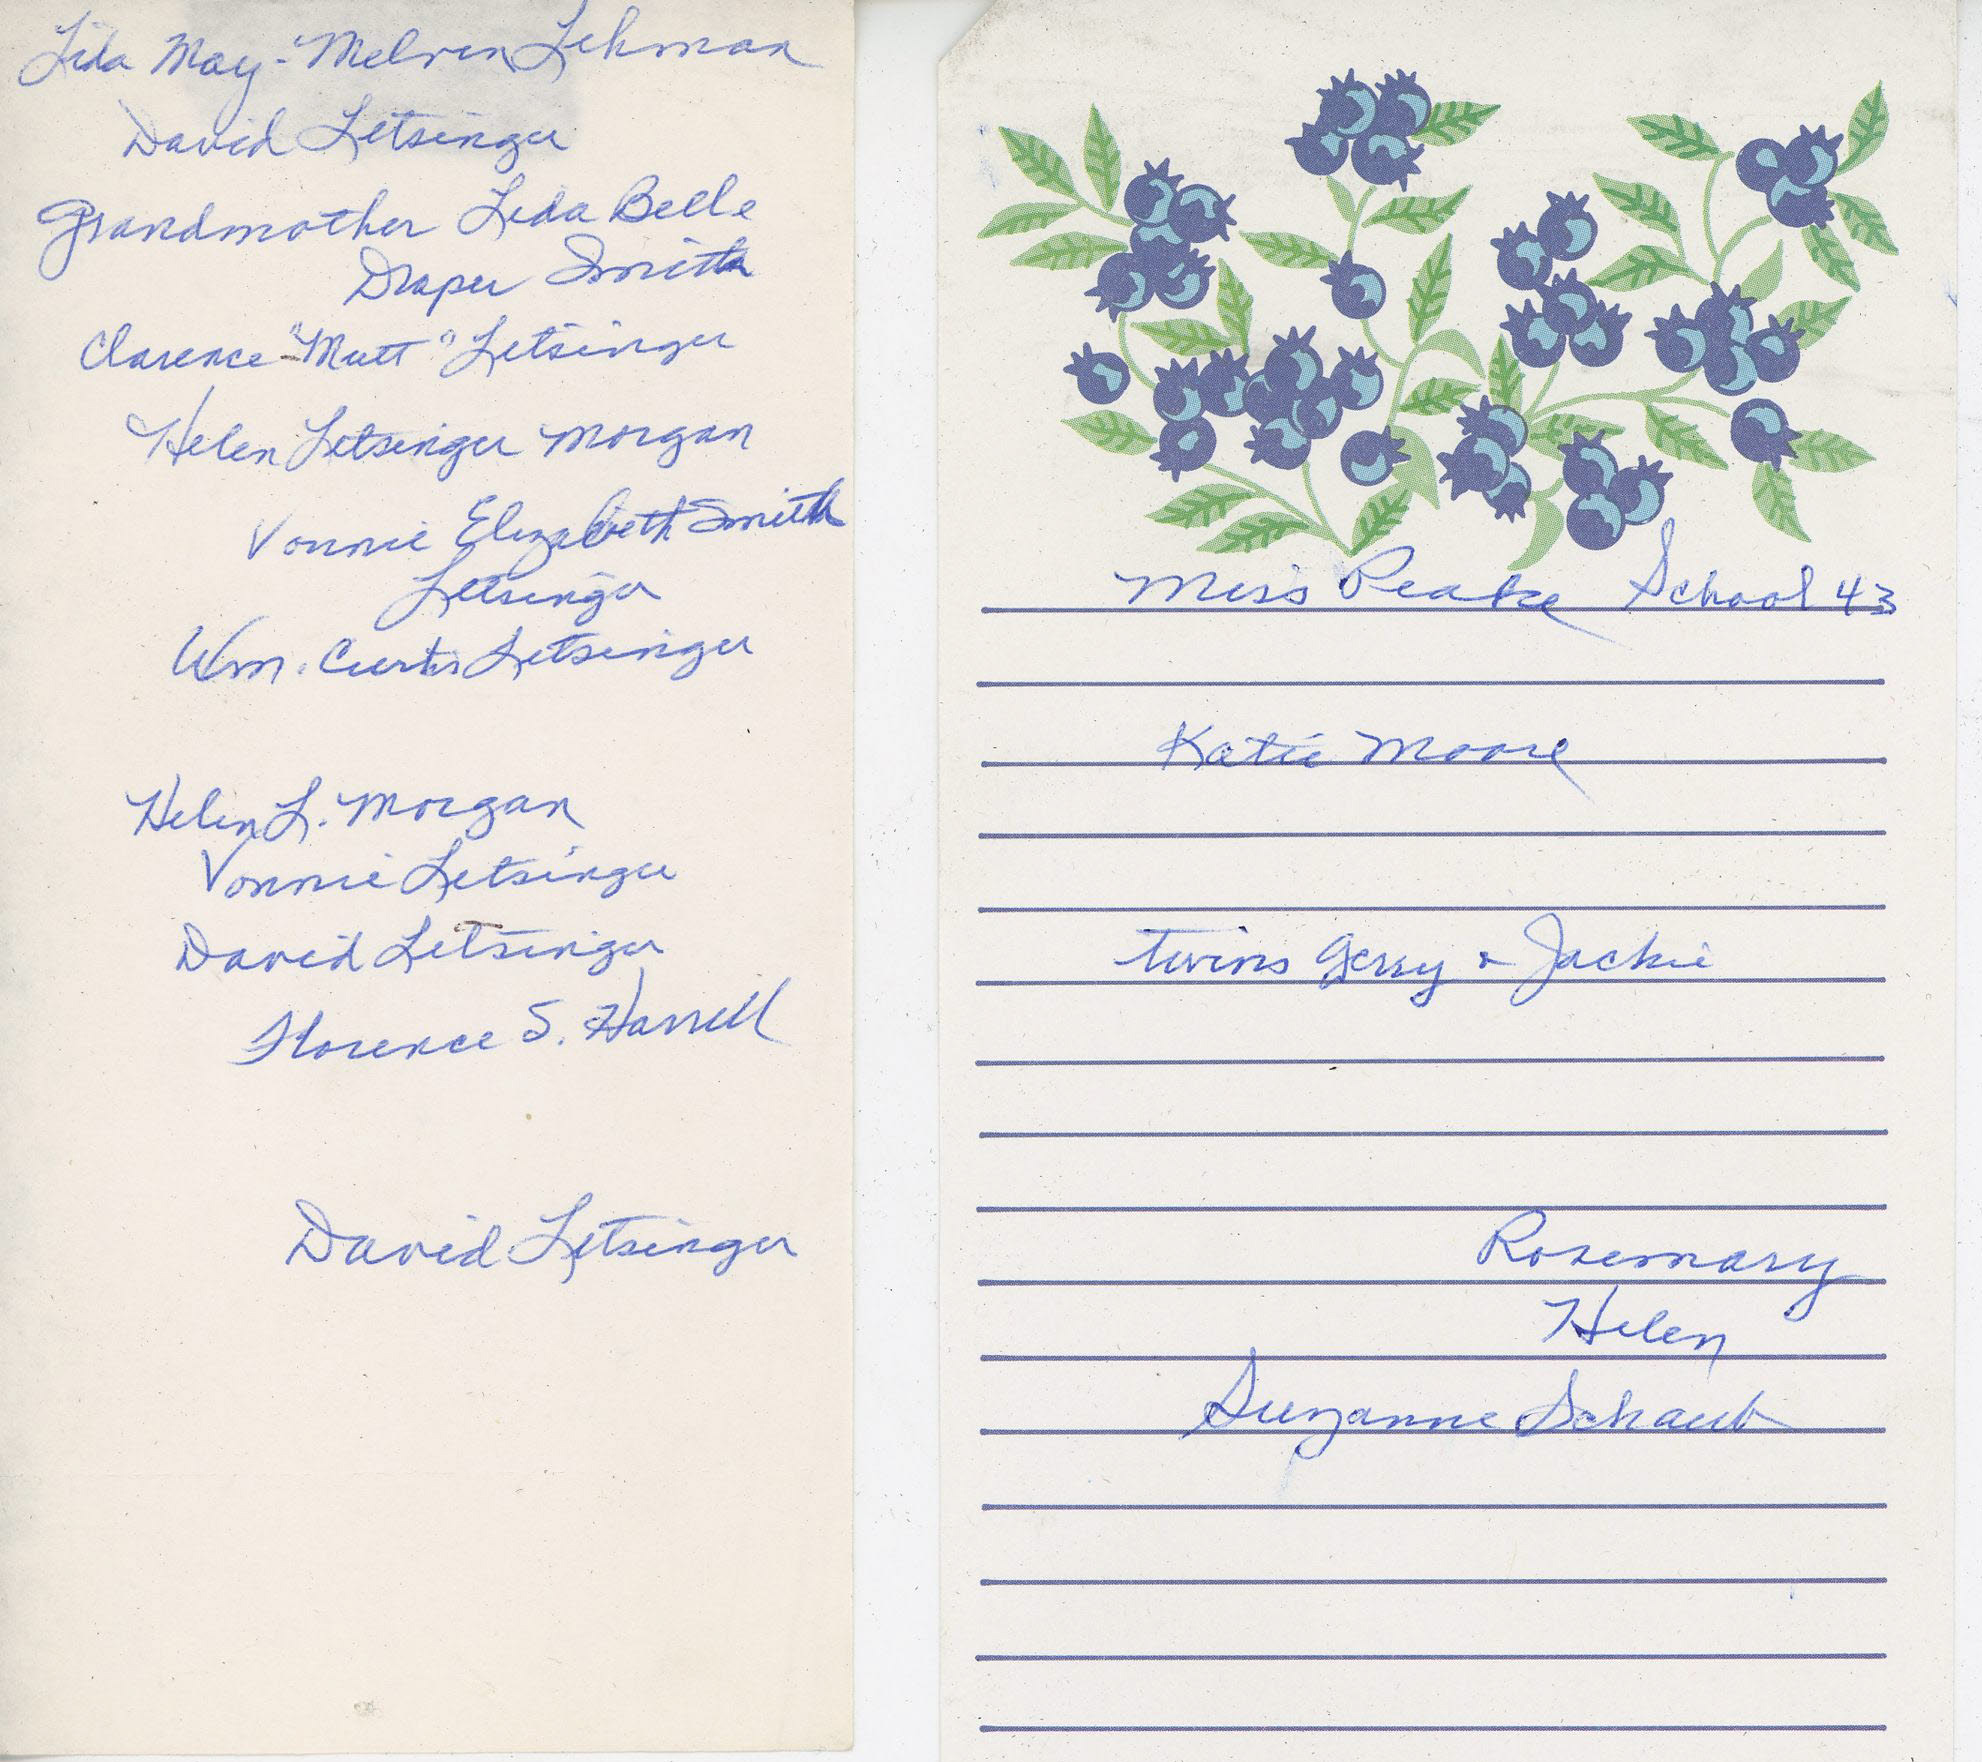 Lida May - Melvin Lehman
David Letsinger
Grandmother Lida Belle
Draper Smith
Clarence "Mutt" Letsinger
Helen Letsinger Morgan
Vonnie Elizabeth Smith
Letsinger
Wm. Curtis Letsinger
Helen L. Morgan
Vonnie Letsinger
David Letsinger
Florence S. Harrell
David Letsinger
Miss Peake School 43
Katie Moore
twins Gerry & Jackie
Rosemary
Helen
Suzanne Schaub